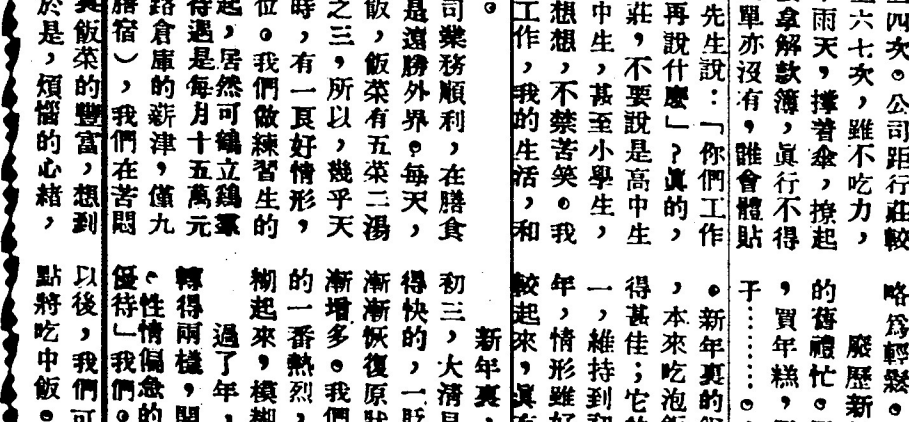 四次。公司距行莊較
六七次，雖不吃力，
雨天，撐着傘，撩起
拿解款簿，眞行不得
單亦沒有，誰會體貼
先生說：「你們工作
再說什麼」？眞的，
莊，不要說是高中生
中生，甚至小學生，
想想，不禁苦笑。我
工作，我的生活，和
。
司業務順利，在膳食
是遠勝外界。每天，
飯，飯菜有五菜二湯
之三，所以，幾乎天
時，有一頁好情形，
位。我們做練習生的
起，居然可鶴立鷄羣
待遇是每月十五萬元
路倉庫的薪津，僅九
膳宿），我們在苦悶
飯菜的豐富，想到
於是，煩惱的心緒，
略爲輕鬆。
廢歷新
的舊禮忙。
，買年糕，
于………。
。新年裏的
，本來吃泡飯
得甚佳；它的
一，維持到初
年，情形雖好
較起來，眞
新年裏，
初三，大清
得快的，一眨
漸漸恢復原狀
漸增多。我們
的一番熱烈，
糊起來，模糊
過了年，
轉得兩樣，開
。性情偏急的
優待」我們。
以後，我們可
點將吃中飯。